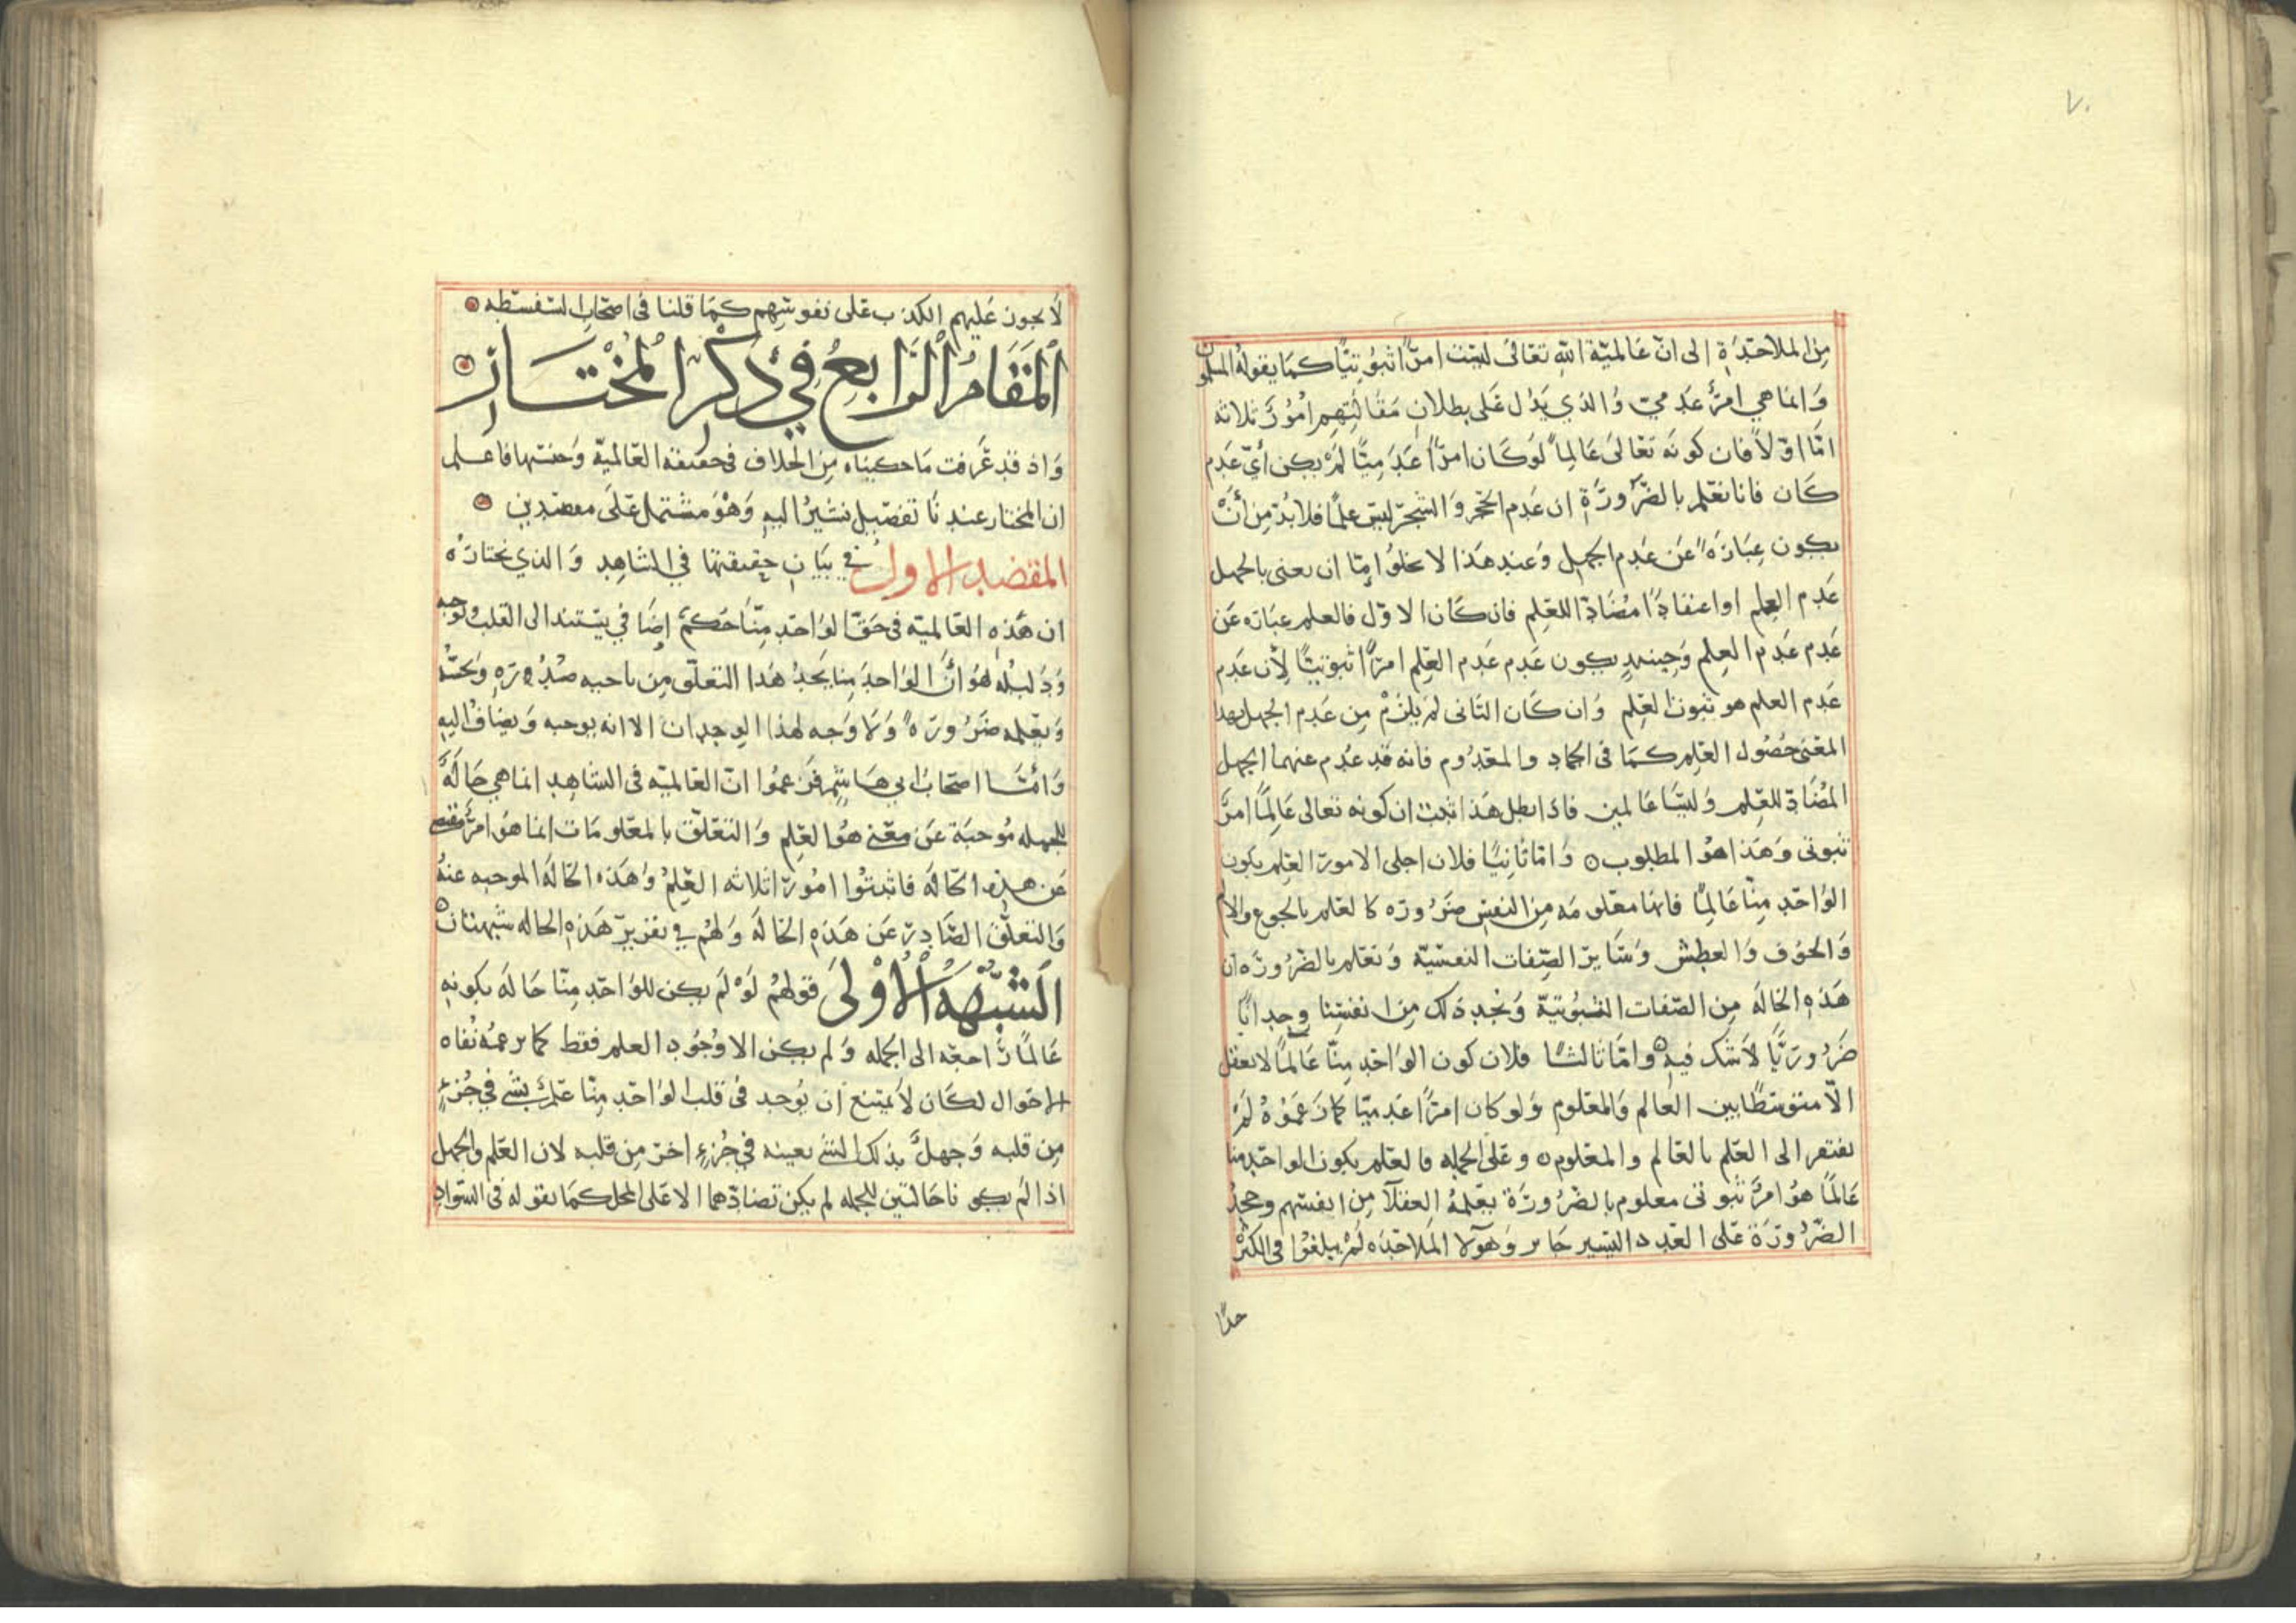 ٧٠
من الملاحدة الى ان عالمية الله تعالى ليست امرًا ثبوتيًا كما يقوله المسلمون
وانما هي امرٌ عدمي والذي يدل على بطلان مقالتهم امورٌ ثلاثه
امّا اوّلاً فان كونه تعالى عالمًا لو كان امرًا عدميًا لم يكن أيّ عدم
كان فانا نعلم بالضرورة ان عدم الحجر والشجر ليس علمًا فلا بدّ من أن
يكون عبارةً عن عدم الجهل وعند هذا لا يخلوا إمّا ان يعنى بالجهل
عدم العلم او اعتقادًا مضادًا للعلم فان كان الاوّل فالعلم عباره عن
عدم عدم العلم وحينئذٍ يكون عدم عدم العلم امرًا ثبوتيًا لأن عدم
عدم العلم هو ثبوت العلم وان كان الثانى لم يلزم من عدم الجهل بهذا
المعنى حصول العلم كما فى الجماد والمعدوم فانه قد عدم عنهما الجهل
المضاد للعلم وليسا عالمين فاذا بطل هذا ثبت ان كونه تعالى عالمًا امرٌ
ثبوتى وهذا هو المطلوب ٥ وامّا ثانيًا فلان اجلى الامور العلم بكون
الواحد منّا عالمًا فانها معلومه من النفس ضروره كالعلم بالجوع والالم
والخوف والعطش وسائر الصفات النفسيّه ونعلم بالضروره ان
هذه الحاله من الصفات الثبوتيّة ونجد ذلك من انفسنا وجدانًا
ضروريًا لا شك فيه ٥ وامّا ثالثًا فلان كون الواحد منّا عالمًا لا يعقل
الّا متوسّطًا بين العالم والمعلوم ولو كان امرًا عدميًا كما زعموهُ لم
يفتقر الى العلم بالعالم والمعلوم ٥ وعلى الجمله فالعلم بكون الواحد منا
عالمًا هو امرٌ ثبوتى معلوم بالضرورة يعلمه العقلآ من انفسهم وجحد
الضرورة على العدد اليسير جايز وهولآ الملاحده لم يبلغوا فى الكثرة
حدًّا
لا يجوز عليهم الكذب على نفوسهم كما قلنا فى اصحاب السفسطه
المقام الرابع في ذكر المختار
واذ قد عرفت ما حكيناه من الخلاف فى حقيقه العالميّة وجنسها فاعلم
ان المختار عندنا تفصيل نشير اليه وهو مشتمل على مقصدين
المقصد الاول في بيان حقيقتها في الشاهد والذي نختارهُ
ان هذه العالميّه فى حقّ الواحد منّا حكمٌ إضافي يستند الى القلب يوجبه
ودليله هو أنّ الواحد منا يجد هذا التعلّق من ناحيه صدره ويحسّه
ويعلمه ضرورةً ولا وجه لهذا الوجدان الا انه يوجبه ويضاف اليه
وأمّا اصحاب ابي هاشم فزعموا انّ العالميّه فى الشاهد انما هي حالةٌ
للجمله موجبة عن معنى هو العلم والتعلّق بالمعلومات انما هو امرٌ مقتضى
عن هذه الحالة فاثبتوا امورًا ثلاثه العلم وهذه الحالة الموجبه عنهُ
والتعلّق الصّادر عن هذه الحالة ولهم في تقرير هذه الحاله شبهتان ٥
الشبهة الأولى قولهم لو لم يكن للواحد منّا حالة بكونه
عالمًا راجعه الى الجمله ولم يكن الا وجود العلم فقط كما يزعمه نفاه
الاحوال لكان لا يمتنع ان يوجد فى قلب الواحد منّا علمٌ بشئ في جزءٍ
من قلبه وجهلٌ بذلك الشئ بعينه في جزءٍ اخر من قلبه لان العلم والجهل
اذا لم يكونا حالتين للجمله لم يكن تضادّهما الا على المحل كما نقوله فى السّواد